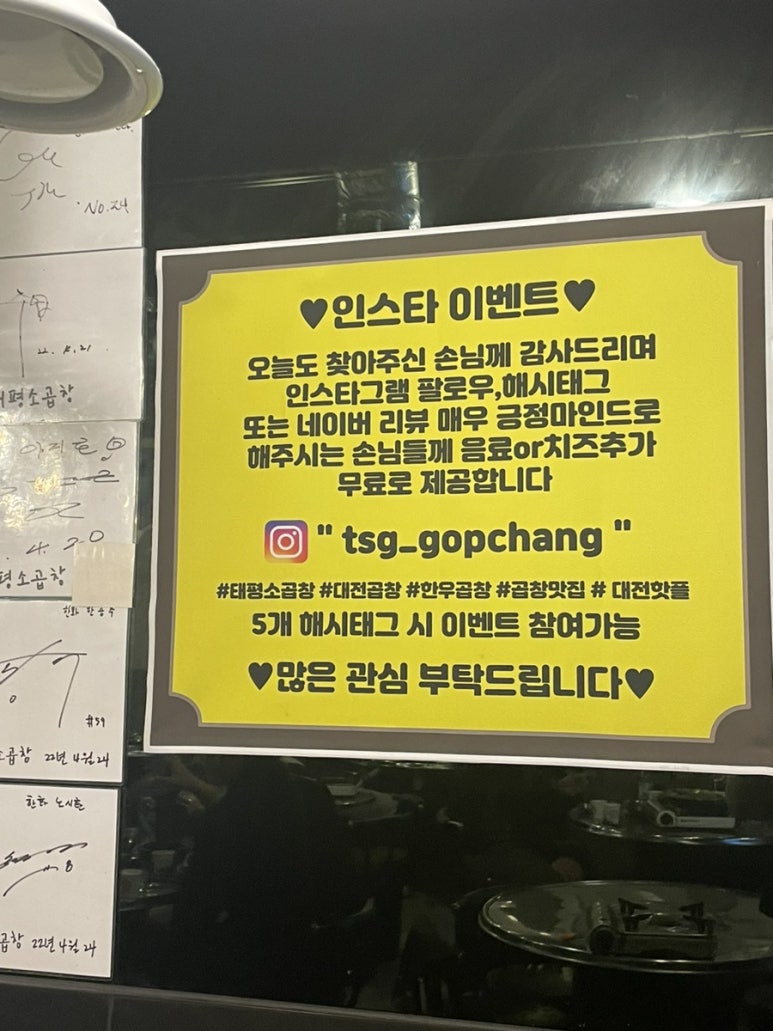 ♥인스타 이벤트♥
오늘도 찾아주신 손님께 감사드리며
인스타그램 팔로우,해시태그
또는 네이버 리뷰 매우 긍정마인드로
해주시는 손님들께 음료or치즈추가
무료로 제공합니다
" tsg_gopchang "
#태평소곱창 #대전곱창 #한우곱창 #곱창맛집 # 대전핫플
5개 해시태그 시 이벤트 참여가능
♥많은 관심 부탁드립니다♥
No.24
22. 5. 21
평소곱창
4. 20
평소곱창
한화
#59
소곱창 22년 4월 24
한화 노시환
8
곱창 22년 4월 24